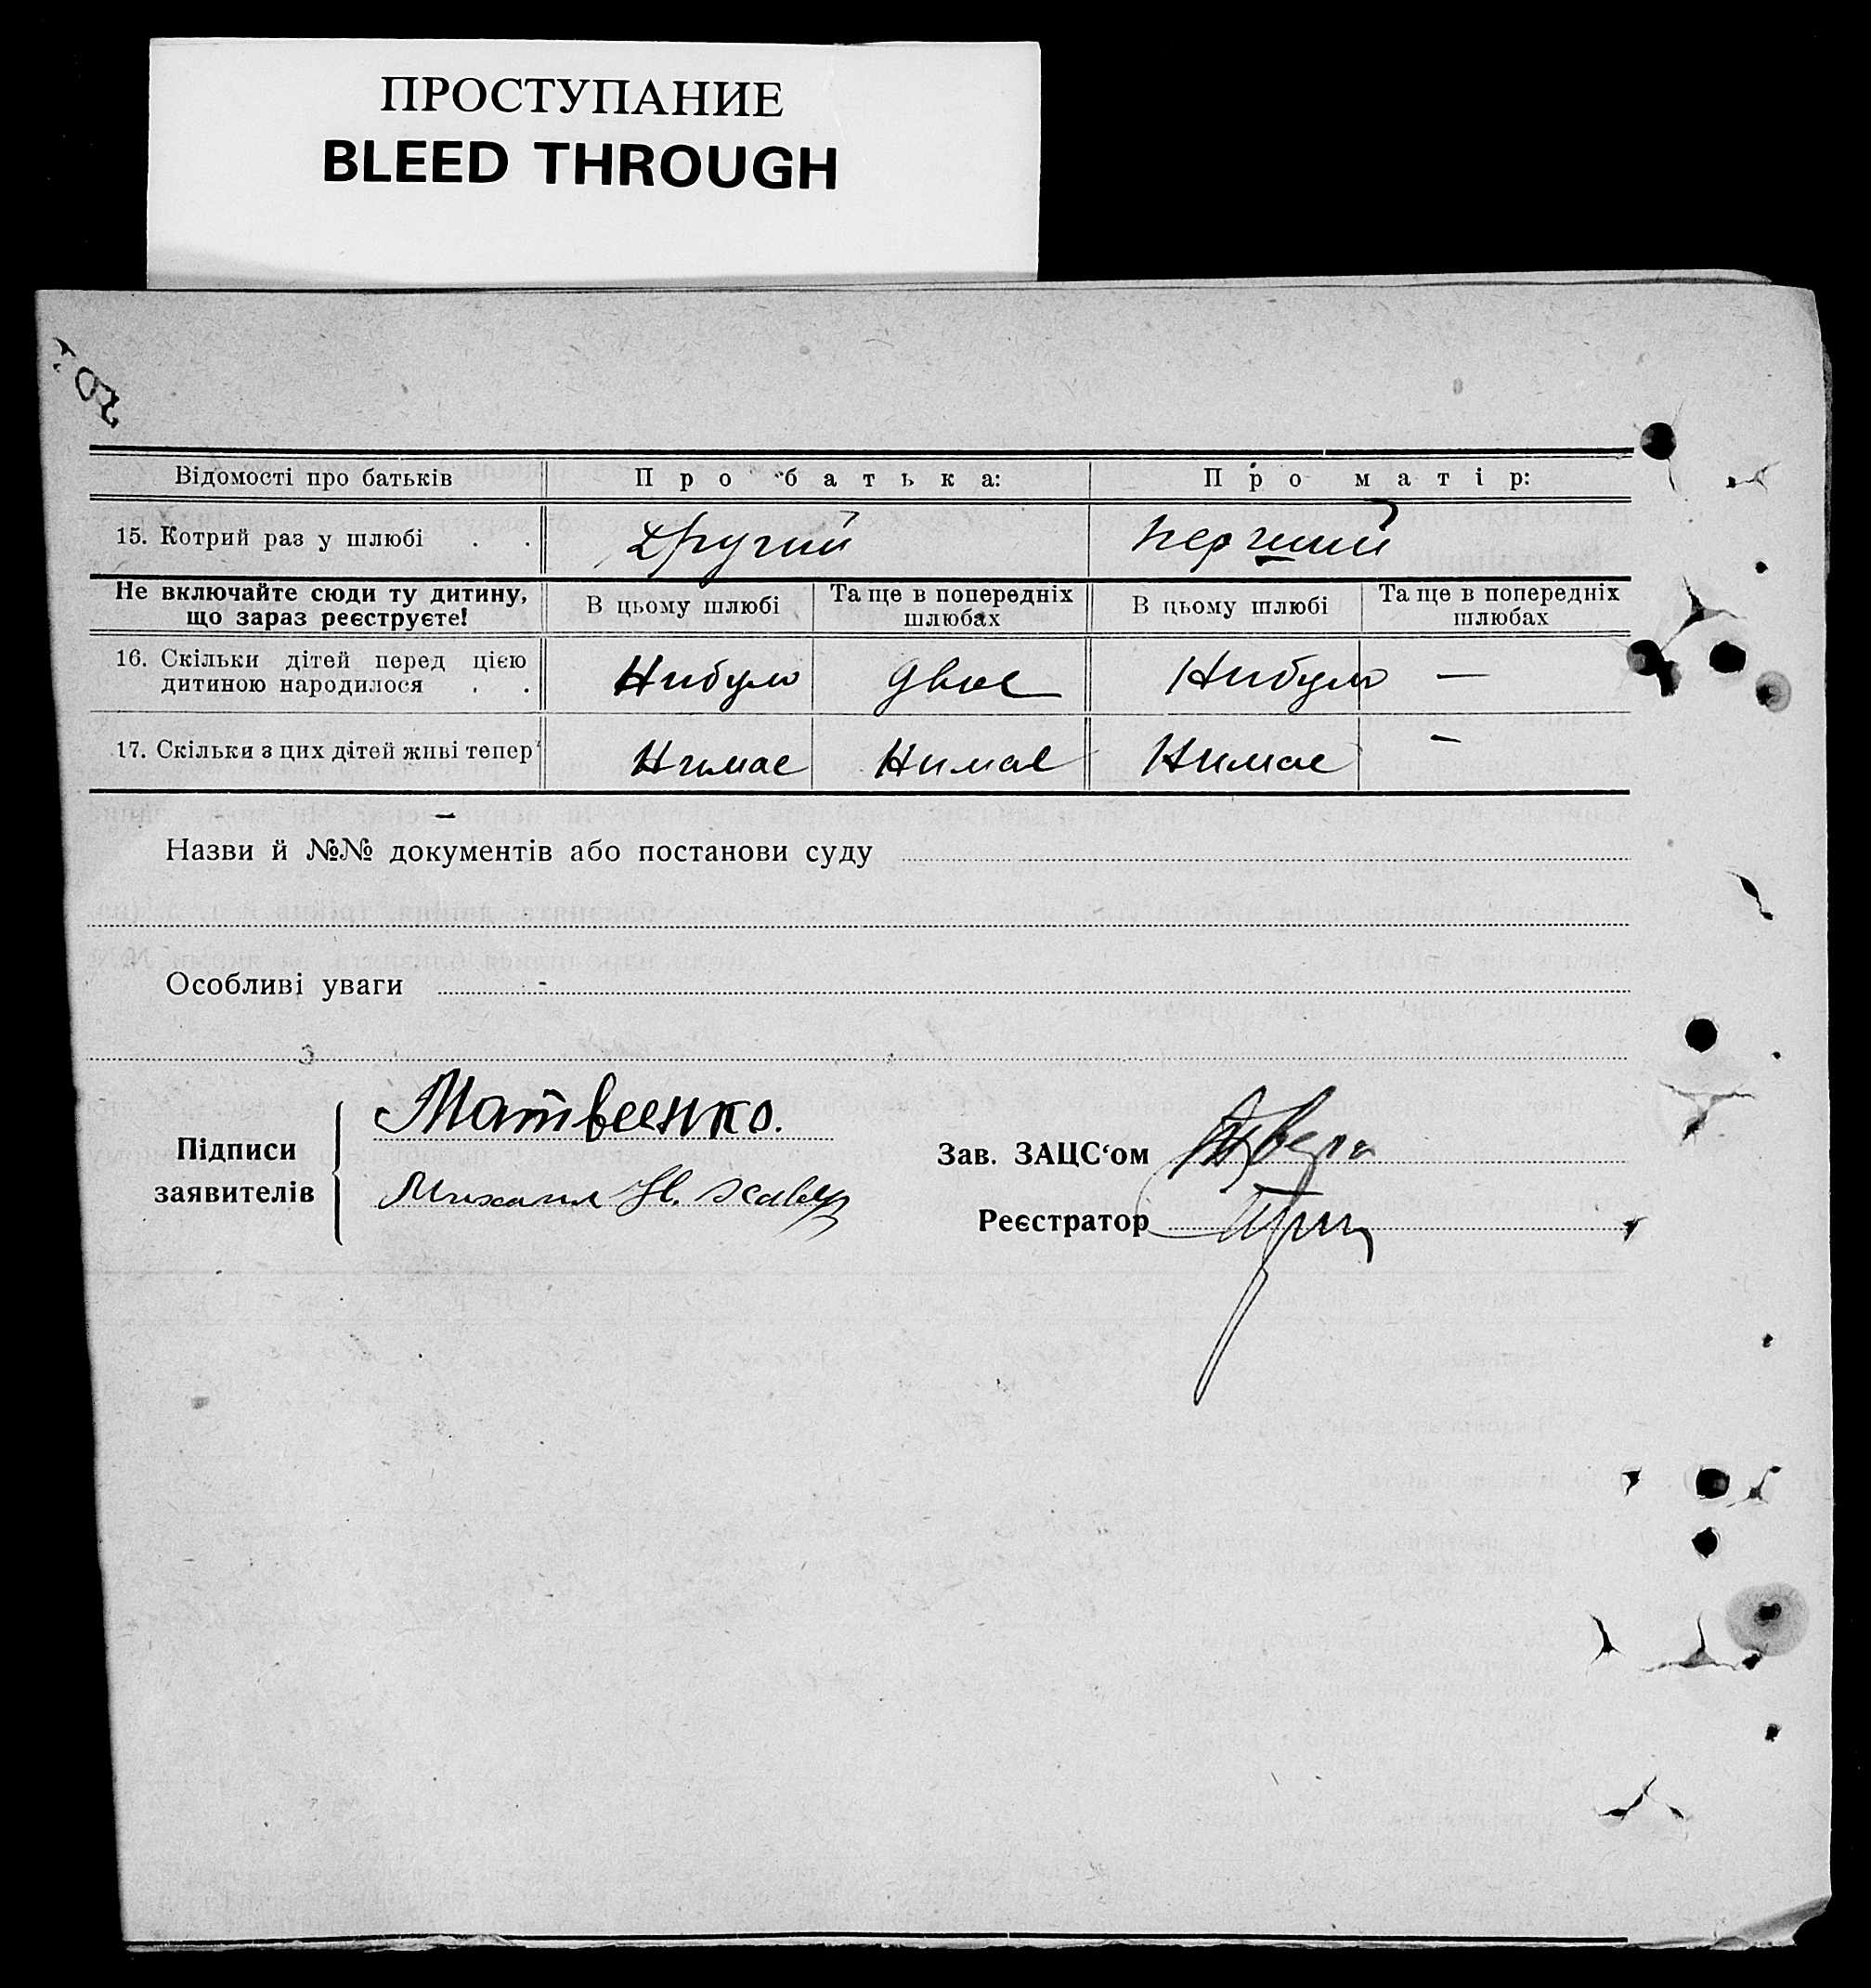 ПРОСТУПАНИЕ
BLEED THROUGH
Відомості про батьків Про батька: Про матір:
15. Котрий раз у шлюбі . . другий перший
Не включайте сюди ту дитину, що зараз реєструєте! В цьому шлюбі Та ще в попередніх шлюбах В цьому шлюбі Та ще в попередніх шлюбах
16. Скільки дітей перед цією дитиною народилося . . Нибуло двое Нибуло —
17. Скільки з цих дітей живі тепер Нимае Нимае Нимае —
Назви й №№ документів або постанови суду
Особливі уваги
Підписи заявителів
Матвеенко.
Михаил
Зав. ЗАЦС‘ом
Реєстратор